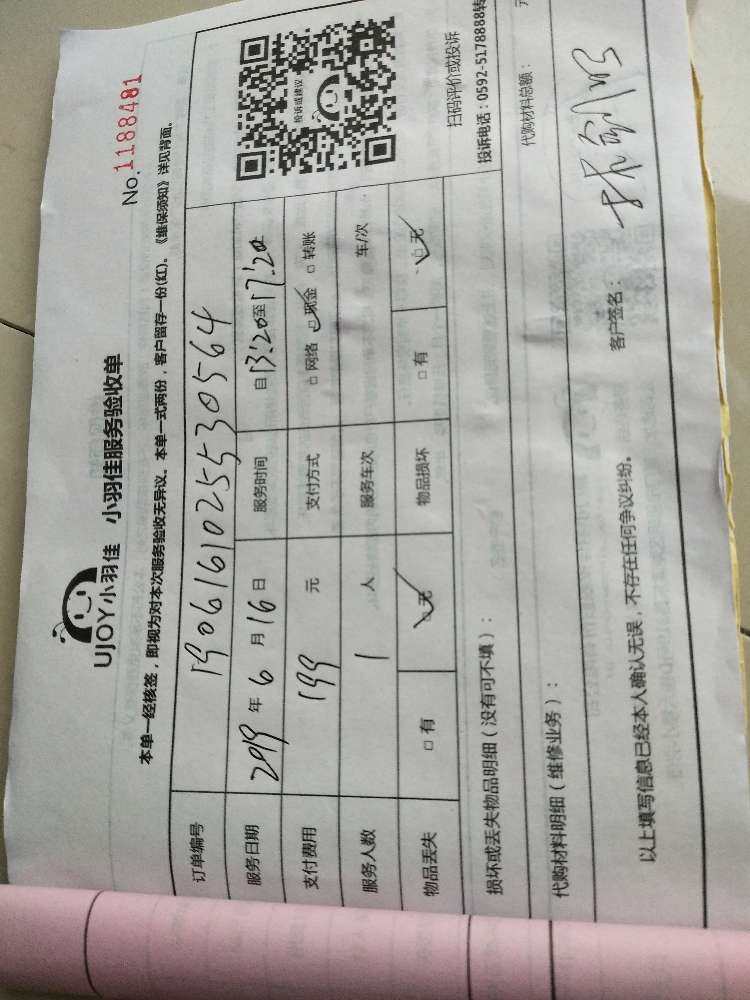 UJOY小羽佳 小羽佳服务验收单
No.1188481
本单一经核签，即视为对本次服务验收无异议。本单一式两份，客户留存一份(红)。《维保须知》详见背面。
订单编号 19061610255530564
服务日期 2019 年 6 月 16 日 服务时间 自13:20至17:20
支付费用 199 元 支付方式 □ 网络 □ 现金 □ 转账
服务人数 1 人 服务车次 车/次
物品丢失 □ 有 □ 无 物品损坏 □ 有 □ 无
投诉或建议
扫码评价或投诉
投诉电话：0592-5178888转
损坏或丢失物品明细（没有可不填）：
代购材料明细（维修业务）： 代购材料总额： 元
以上填写信息已经本人确认无误，不存在任何争议纠纷。 客户签名：